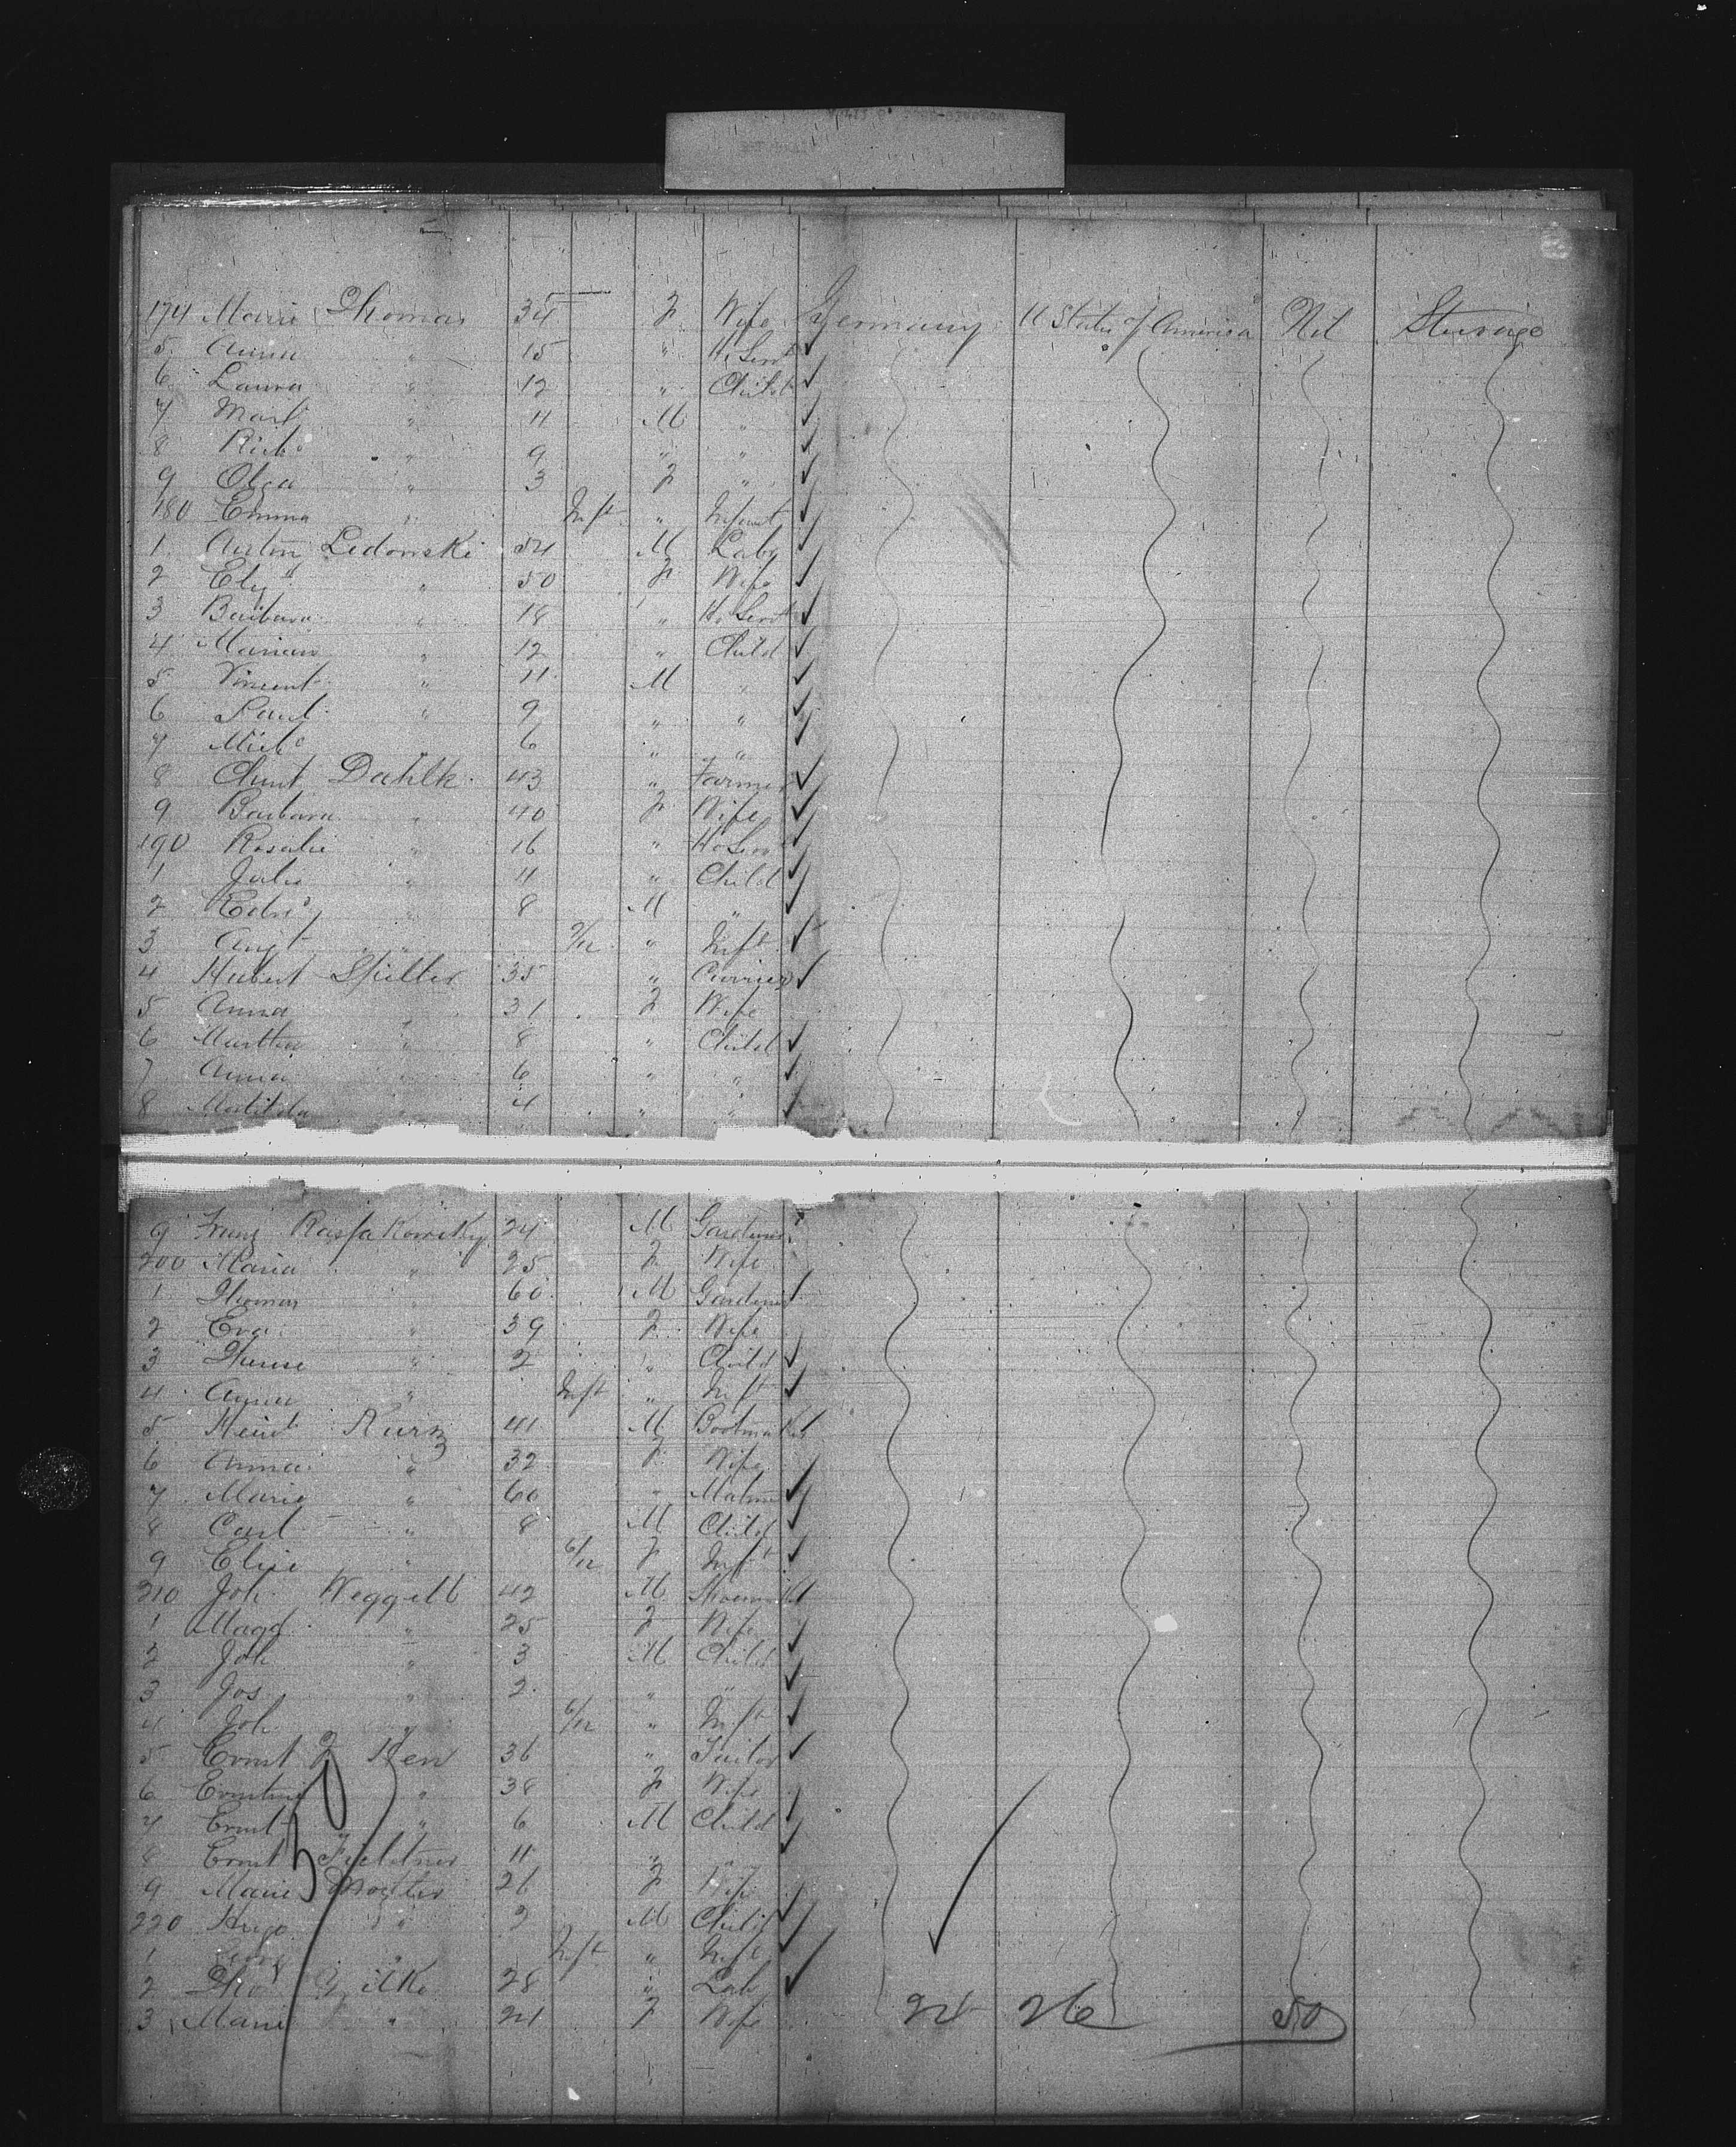 174 Marie Thomas 34 F Wife Germany U States of America Nil Steerage
5 Anna " 15 " H. Servt
6 Laura " 12 " Child
7 Mart " 11 M "
8 Richd " 9 " "
9 Olga " 3 F "
180 Emma " Inft " Infant
1 Anton Ledonski 54 M Labr
2 Eliz " 50 F Wife
3 Barbara " 18 " H. Servt
4 Marian " 12 " Child
5 Vincent " 11 M "
6 Paul " 9 " "
7 Michl " 6 " "
8 Clemt Dahlk 43 " Farmer
9 Barbara " 40 F Wife
190 Rosalie " 16 " H. Servt
1 Julia " 11 " Child
2 8 M "
3 Augt " 9/12 " Inft
4 Hubert Spiller 35 " Currier
5 Anna " 31 F Wife
6 Martha " 8 " Child
7 Anna " 6 " "
8 Matilda " 4 " "
9 Franz 24 M Gardener
200 Maria " 25 F Wife
1 Thomas " 60 M Gardener
2 Eva " 39 F Wife
3 " 2 " Child
4 Anna " Inft " Inft
5 Heinr Kurz 41 M Bootmaker
6 Anna " 32 F Wife
7 Marie " 60 " Matron
8 Carl " 8 M Child
9 Elise " 6/12 F Inft
210 Joh. Weggelt 42 M Shoemaker
1 Magd. " 25 F Wife
2 Joh. " 3 M Child
3 Jos. " 2 " "
4 Joh. " 6/12 " Inft
5 Ernst 36 " Tailor
6 Ernstine " 38 F Wife
7 Ernst " 6 M Child
8 Ernst 11 " "
9 Marie 26 F Wife
220 Hugo " 2 M Child
1 " Inft " Inft
2 28 " Labr
3 Marie " 24 F Wife
24 26 50